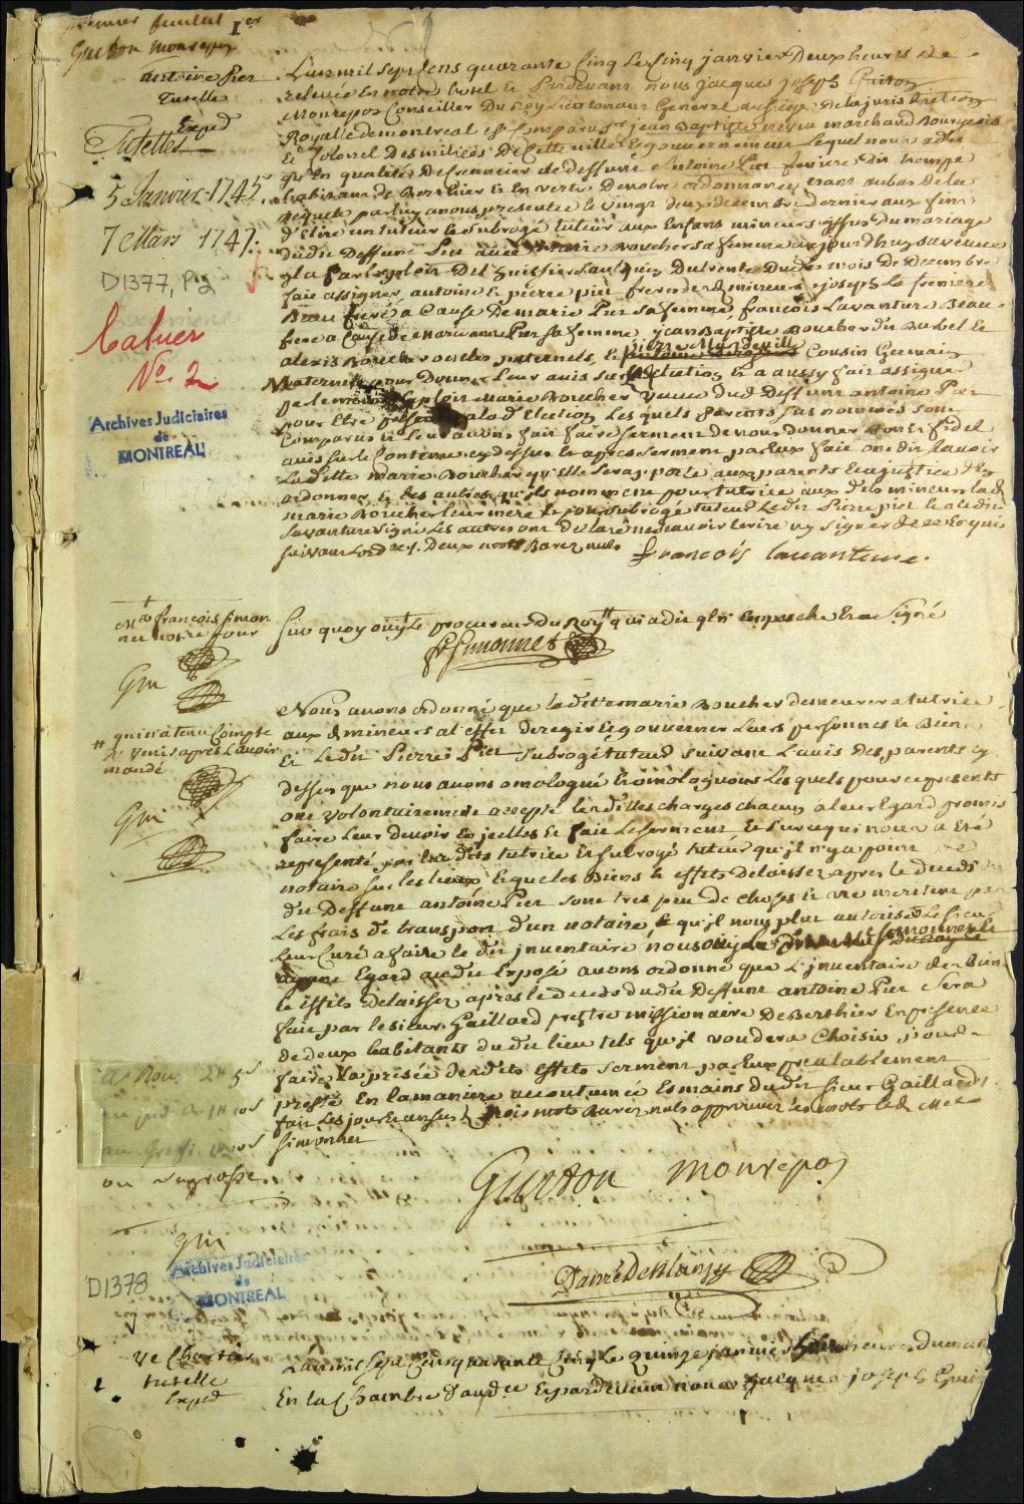 premier feuillet 1er
Guiton Monrepos
antoine Pier
Tutelle
Exped
Tutelles
5 Janvier 1745.
7 Mars 1747.
D1377, P.2
Cahier
No. 2
Archives Judiciaires
de
MONTREAL
L'an mil sept cens quarante cinq le cinq janvier Deux heures de
relevée En notre hotel et Pardevant nous jacques joseph Guiton
Monrepos Conseiller Du Roy Lieutenant General au siege de la jurisdiction
Royalle de montreal est Comparu Sr jean Baptiste neveu marchand Bourgeois
Et Colonel Des milices De Cette ville Et gouvernement Lequel nous a dit
qu'En qualité De de deffunt antoine Pier
habitant de Berthier Et En vertu De notre ordonnance etant au bas de la
requete par luy a nous presentée le vingt deux decembre dernier aux fins
d'Elire un tuteur et subrogé tuteur aux Enfans mineurs issus du mariage
dudit Deffunt Pier avec marie Boucher sa femme aujourd'huy sa veuve
il a par Exploit De L'huissier du trente Dudit mois de Decembre
fait assigner antoine et pierre pier freres desdits mineurs joseph
Beau frere a Cause De marie Pier sa femme, françois Lavanture Beau
frere a Cause de marie anne Pier sa femme, jean Baptiste Boucher dit Et
alexis Boucher oncles paternels, et pierre Mandeville Cousin Germain
Maternel pour Donner Leur avis sur laditte Election Et a aussy fait assigner
par le meme Exploit marie Boucher veuve dudit Deffunt antoine Pier
pour Etre presente a lad Election Les quels parents sus nommés sont
Comparus Et Leur avons fait faire serment de nous donner bon et fidel
avis sur le Contenu cy dessus Et apres serment par Eux fait ont dit sçavoir
Laditte marie Boucher qu'Elle se raporte aux parents Et a justice d'En
ordonner Et les autres qu'ils nomment pour tutrice aux dits mineurs lad
marie Boucher leur mere Et pour subrogé tuteur Ledit Pierre pier Et a ledit
Lavanture signé Les autres ont declaré ne sçavoir Ecrire ny signer de ce Enquis
suivant L'ord Deux mots Rayez nuls françois lavanture
Mtre françois simon
net notre pour
Gui
Sur quoy ouy le procureur du Roy qui a dit qu'il n'empesche Et a signé
fr Simonnet
qui en a tenu Compte
mandé
Gui
Nous avons ordonné que laditte marie Boucher demeurera tutrice
aux d mineurs a l'effet de regir Et gouverner Leurs personnes Et Biens
Et Ledit Pierre Pier subrogé tuteur suivant L'avis Des parents cy
dessus que nous avons omologué Et omologuons Les quels pour ce presents
ont volontairement accepté lesdittes charges chacun a leur Egard promis
faire Leur devoir En jcelles Et fait Le serment, Et sur ce qui nous a Eté
representé par lesdits tutrice Et subrogé tuteur qu'jl n'y a point de
notaire sur les lieux Et que les Biens Et effets Delaissez apres le deceds
du Deffunt antoine Pier sont tres peu de choses Et ne meritent pas
Les frais de transport d'un notaire, Et qu'jl nous plut autoriser Le sieur
Leur Curé a faire le dit jnventaire, nous
ayant Egard audit Exposé avons ordonné que L'jnventaire des Biens
Et Effets Delaissez apres le deceds dudit Deffunt antoine Pier sera
fait par le sieur Gaillard prestre missionaire De Berthier En presence
de deux habitants dudit lieu tels qu'jl voudera Choisir, pour
faire La prisée desdits Effets serment par Eux prealablement
presté En la maniere accoutumée Es mains dudit sieur Gaillard
fait Les jour Et an sus d trois mots Rayez nuls approuvé les mots
simonnet
a Nous
au Greffe
ou la grosse
Gui
Guiton Monrepos
Danré De Blanzy
D1378
Archives Judiciaires
de
MONTREAL
Ve Chartier
tutelle
Exped
L'an mil sept Cens quarante Cinq Le quinze janvier heures du matin
En la Chambre d'aud.ce Et pardevant nous jacques joseph Guiton